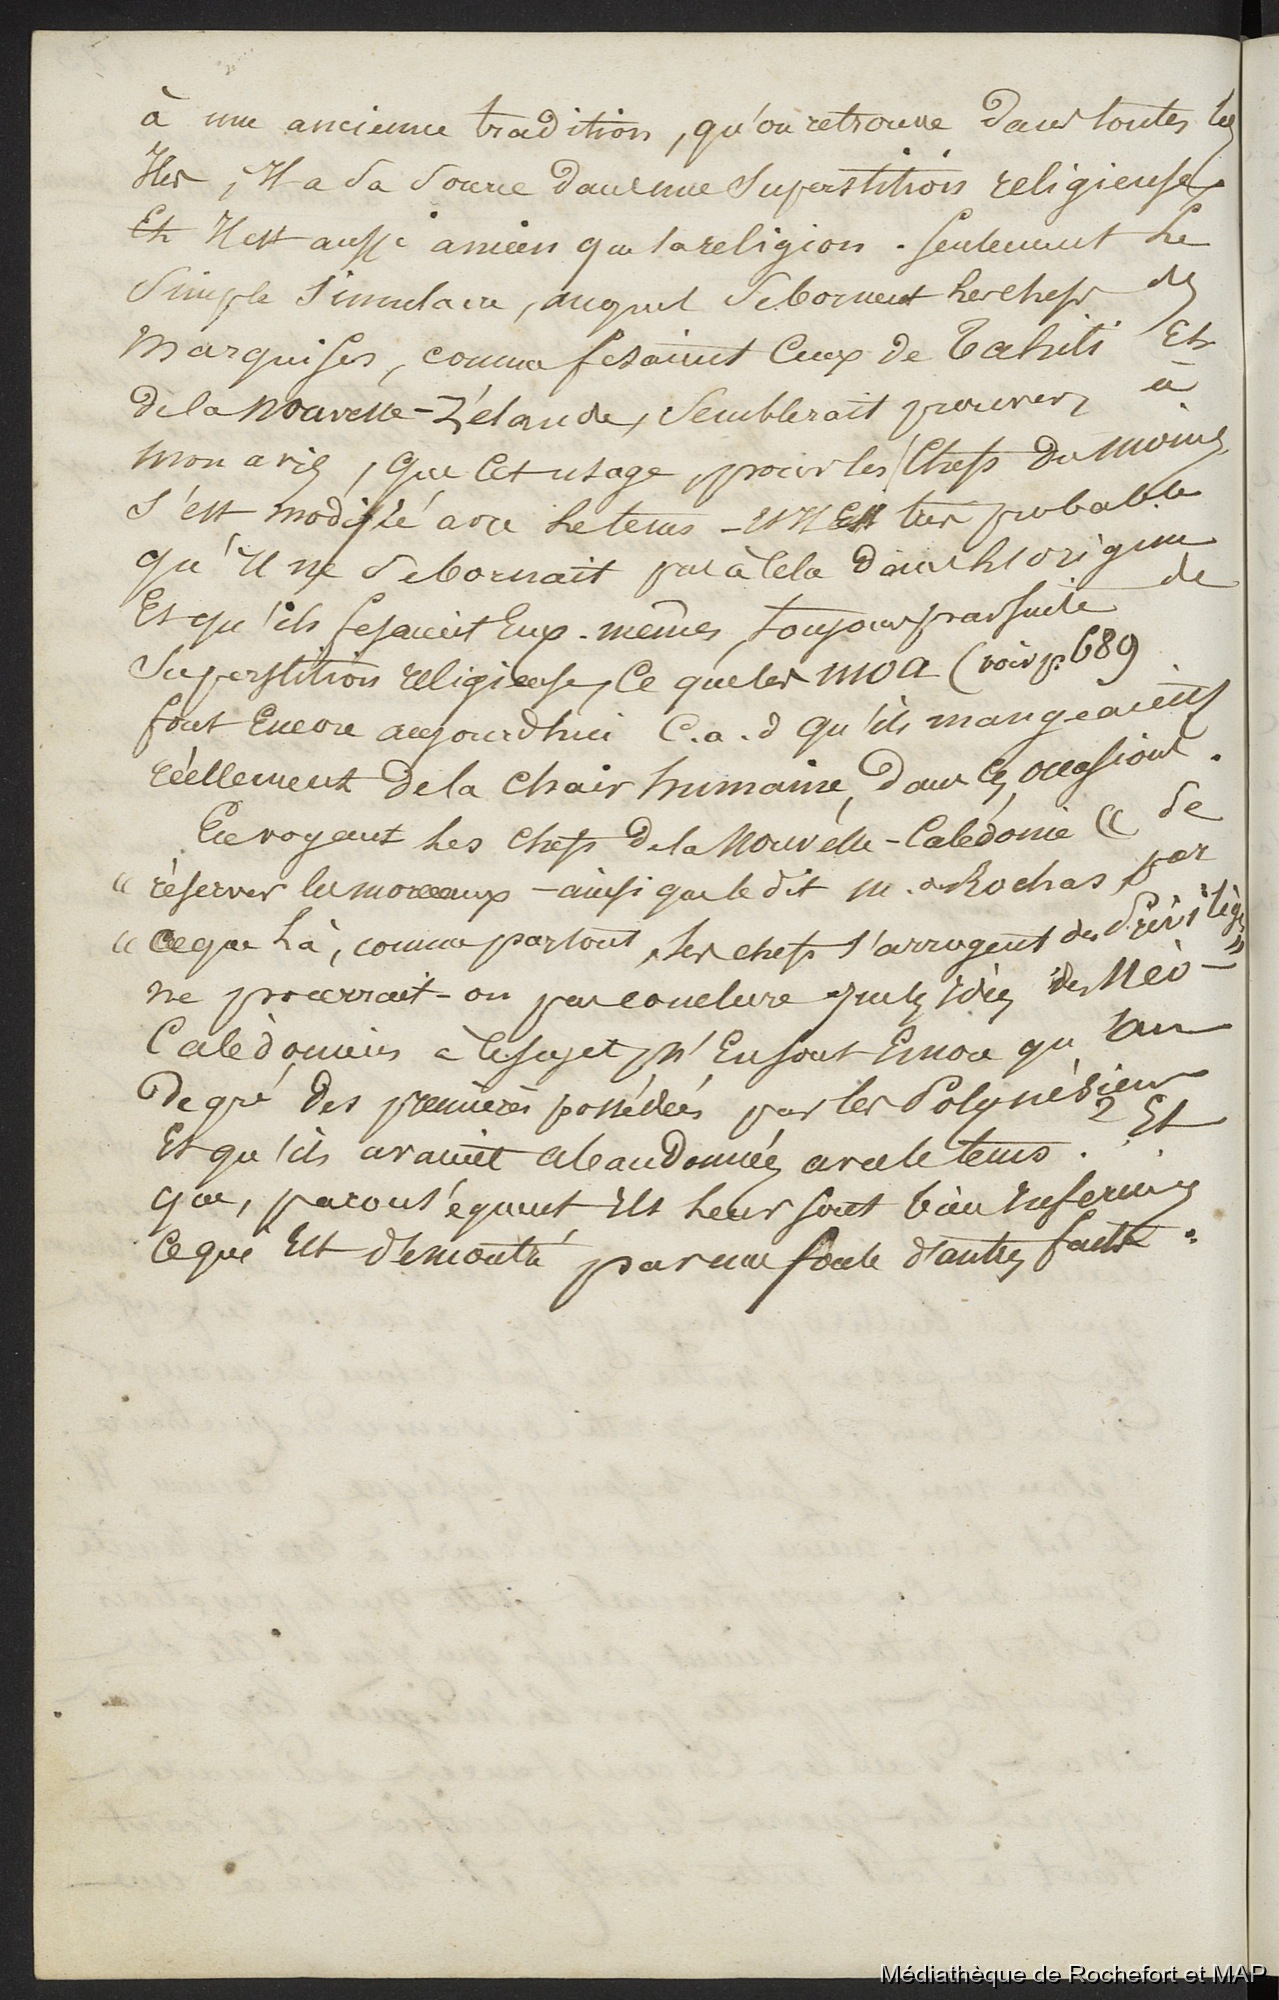 à une ancienne tradition, qu'on retrouve dans toutes les
Iles, Il a sa source dans une superstition religieuse,
Et Il est aussi ancien que la religion. Seulement le
simple simulacre, auquel se bornent les chefs des
marquises, comme fesaient Ceux de Tahiti Et
de la Nouvelle-Zélande, semblerait prouver, à
mon avis, que Cet usage, pour les Chefs du moins
s'est modifié avec le tems - Et Il Est très probable
qu'Il ne se bornait pas à Cela dans l'origine
Et qu'ils fesaient Eux-mêmes, toujours par suite de
superstition religieuse, Ce que les moa (voir p. 689
font Encore aujourdhui C.a.d qu'ils mangeaient
réellement de la chair humaine, dans Ces occasions.
En voyant les chefs de la Nouvelle-Calédonie « se
« réserver les morceaux - ainsi que le dit m. de Rochas, par
« ce que là, comme partout, les chefs s'arrogent des privilèges »
ne pourrait-on pas conclure que les Idées des Néo-
Calédoniens à Ce sujet, n'En sont Encore qu'au
degré des premières possédées par les Polynésiens
Et qu'ils avaient abandonnées avec le tems ? Et
que, par conséquent Ils leur sont bien Inférieurs
Ce qui Est démontré par une foule d'autres faits.
Médiathèque de Rochefort et MAP